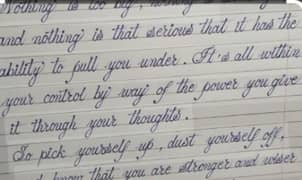 Nothing is too big, nothing
and nothing is that serious that it has the
ability to pull you under. It's all within
your control by way of the power you give
it through your thoughts.
So pick yourself up, dust yourself off,
know that you are stronger and wiser